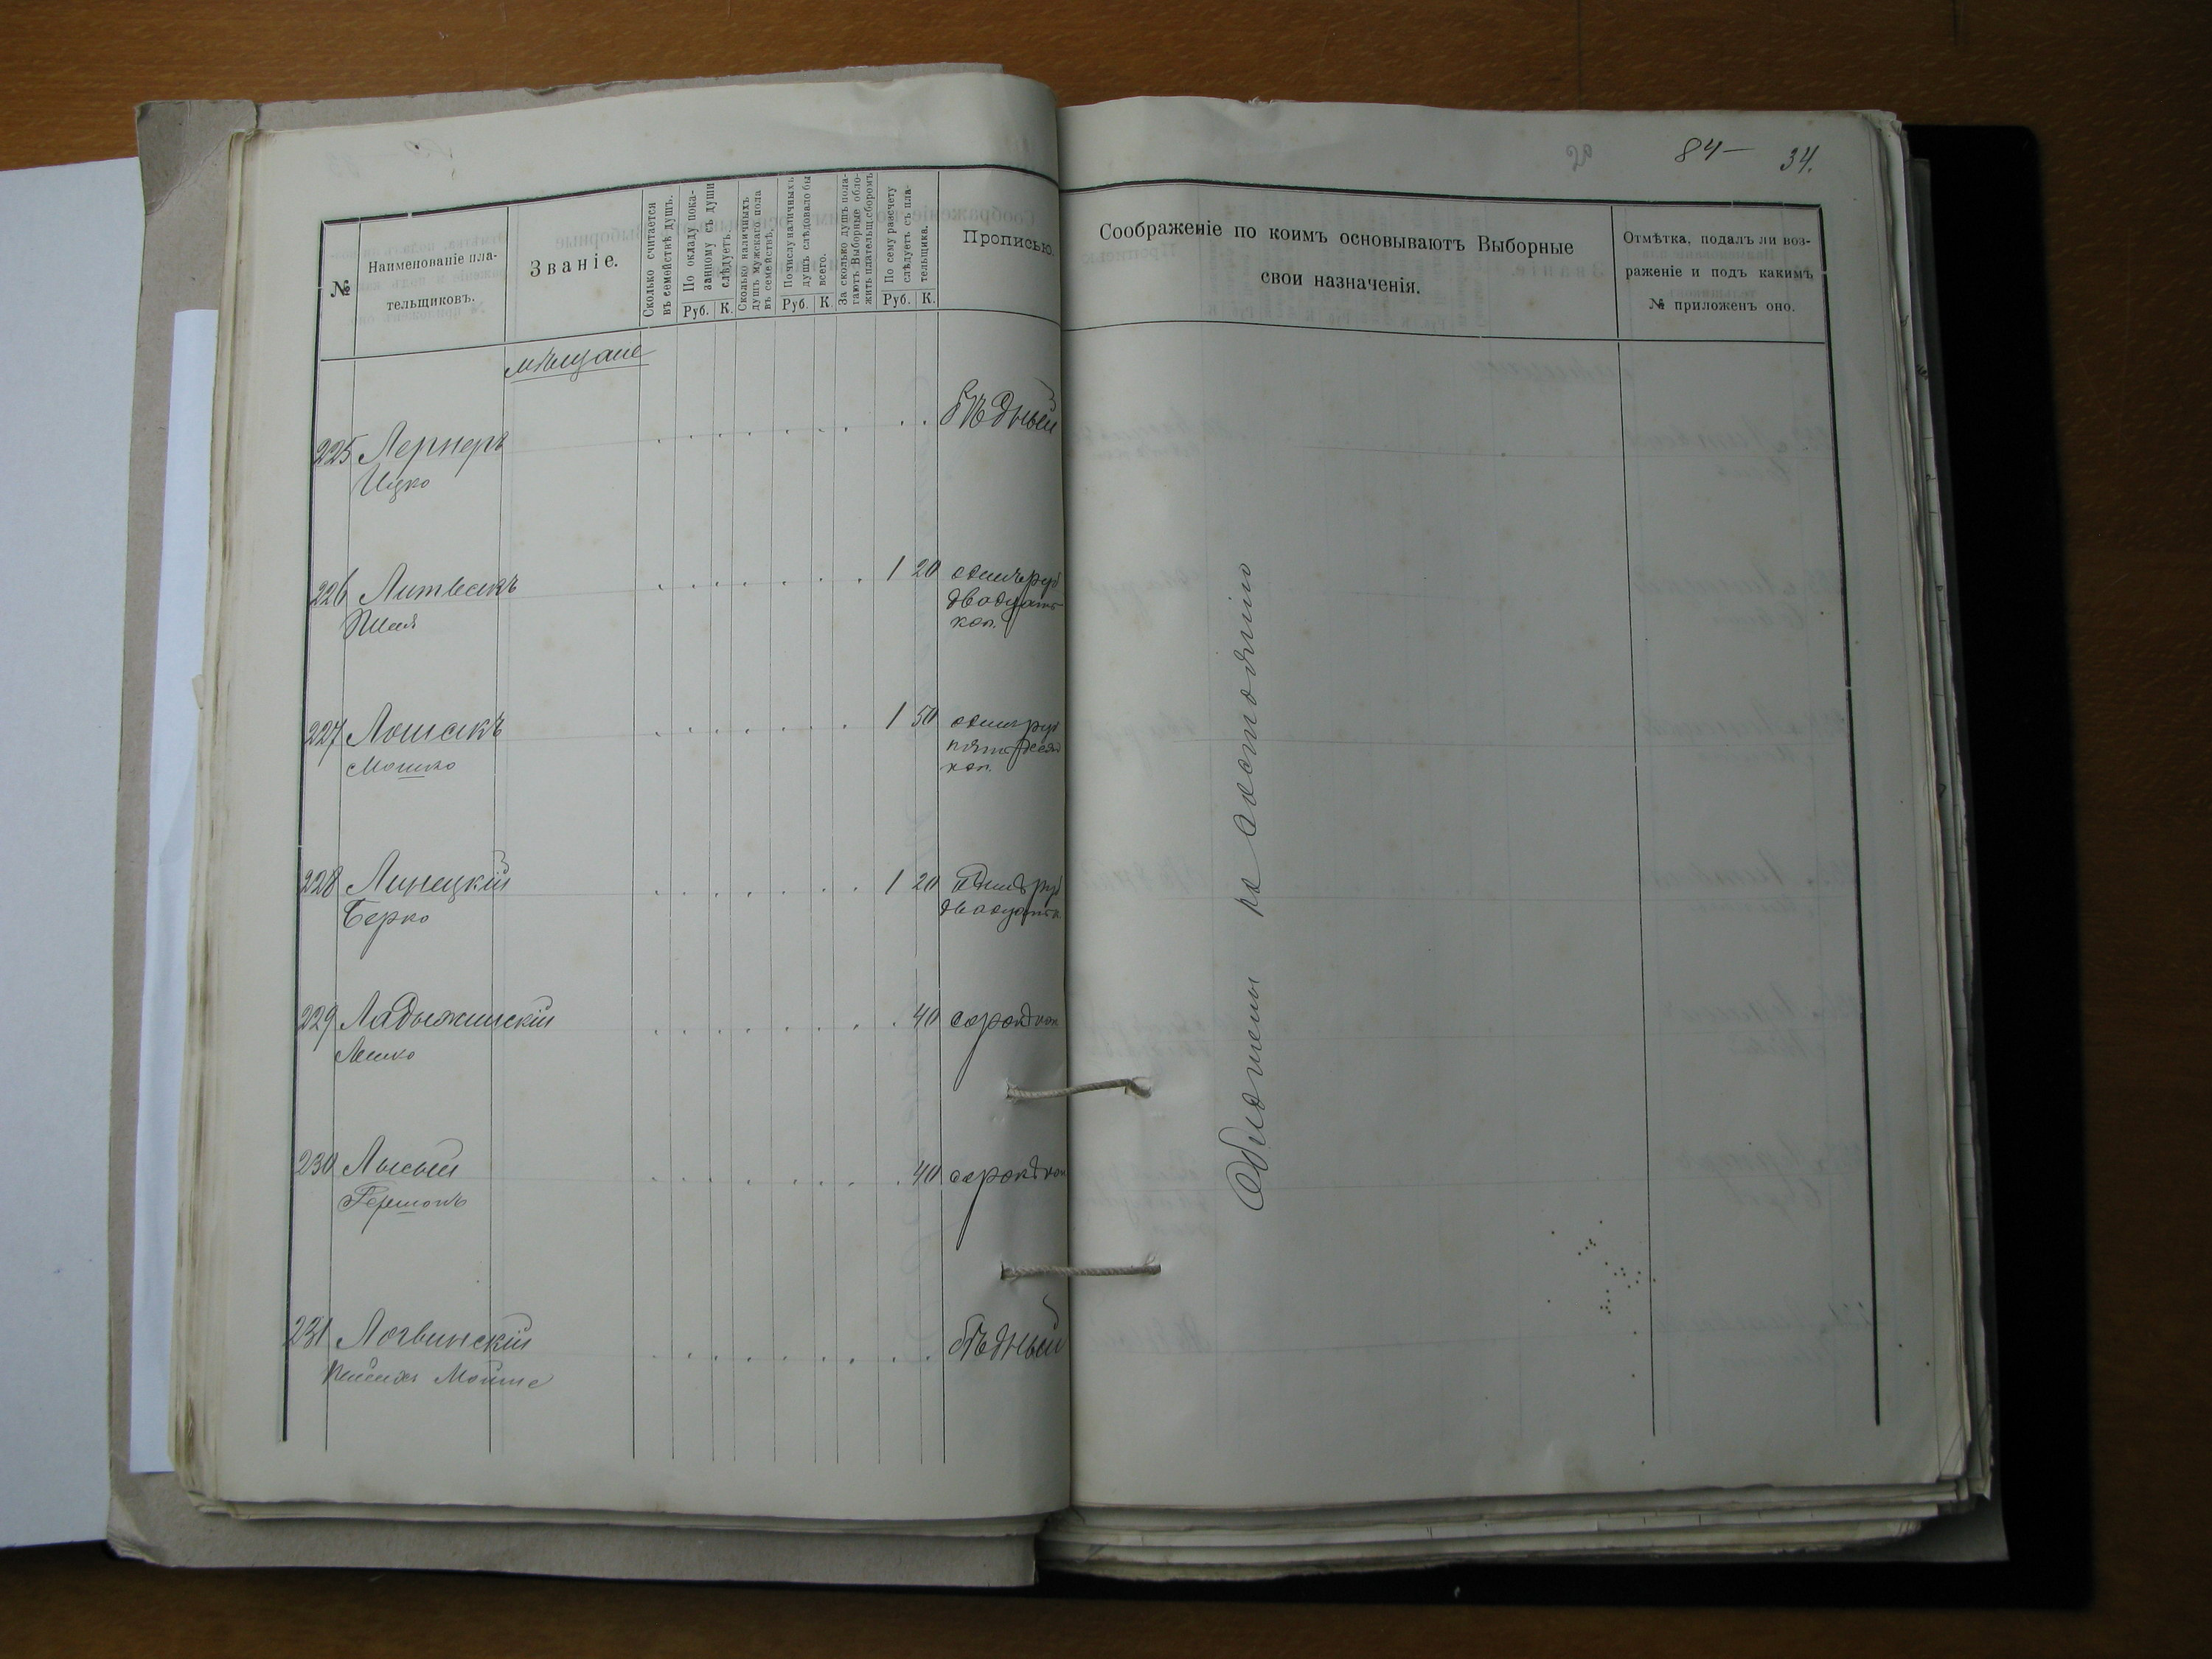 84— 34.
№
Наименованіе пла-
тельщиковъ.
Званіе.
Сколько считается
въ семействѣ душъ.
По окладу пока-
занному съ души
слѣдуетъ.
Руб. К.
Сколько наличныхъ
душъ мужскаго пола
въ семействѣ.
По числу наличныхъ
душъ слѣдовало бы
всего.
Руб. К.
За сколько душъ пола-
гаютъ Выборные обло-
жить плательщ. сборомъ
По сему разсчету
слѣдуетъ съ пла-
тельщика.
Руб. К.
Прописью.
Соображеніе по коимъ основываютъ Выборные
свои назначенія.
Отмѣтка, подалъ ли воз-
раженіе и подъ какимъ
№ приложенъ оно.
мѣщане
225 Лернеръ бѣдный
Ицко
226 Литвакъ 1 20 одинъ руб
двадцать
Шая коп.
227 Лошакъ 1 50 одинъ руб
пятьдесят
Мошко коп.
228 Линецкій 1 20 одинъ руб
Берко двадцать к.
229 Ладыжинскій 40 сорок коп
Лейко
230 Лысый 40 сорокъ коп
Гершонъ
231 Логвинскій бѣдный
Мойше
Обложены по состоянію